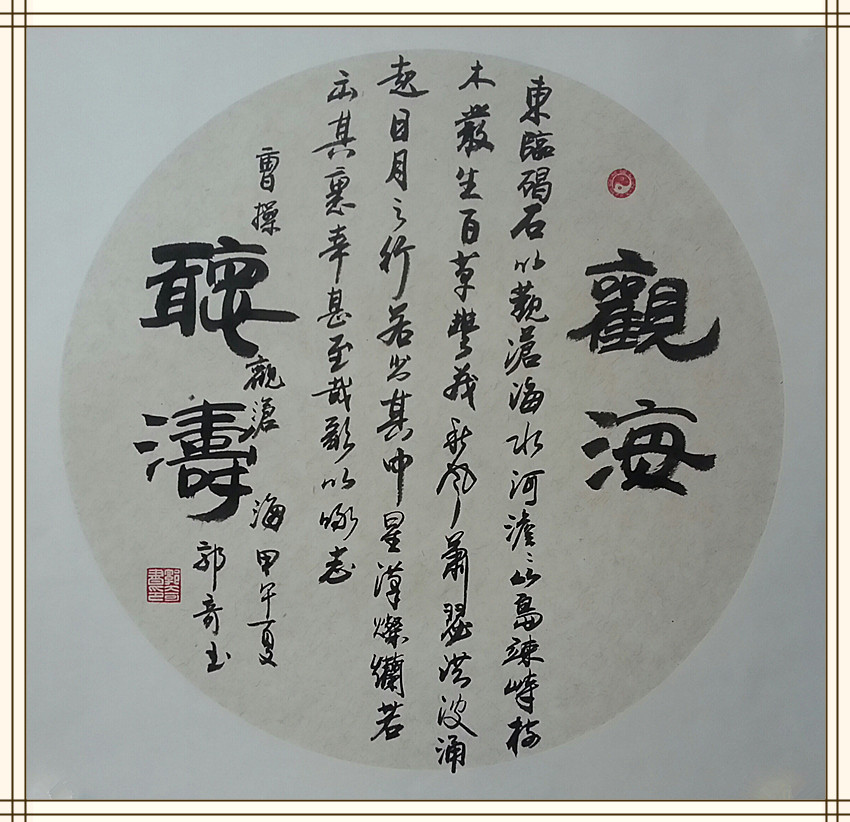 觀海
東臨碣石以觀滄海水河澹々山島竦峙樹
木叢生百草豐茂秋風蕭瑟洪波涌
起日月之行若出其中星漢燦爛若
出其裏幸甚至哉歌以詠志
曹操觀滄海甲午夏
聽濤
郭奇書
郭奇書印